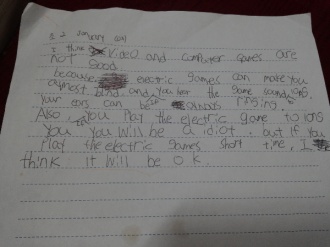 I think Video and computer games are
not good
because electric games can make you
almost blind and you hear the game sound long
Your ears can be ringing.
Also, you Play the electric game to long
You. You will be a idiot. but if You
Play the electric games short time, I
think it will be ok.